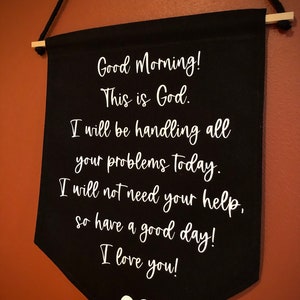 Good Morning!
This is God.
I will be handling all
your problems today.
I will not need your help,
so have a good day!
I love you!